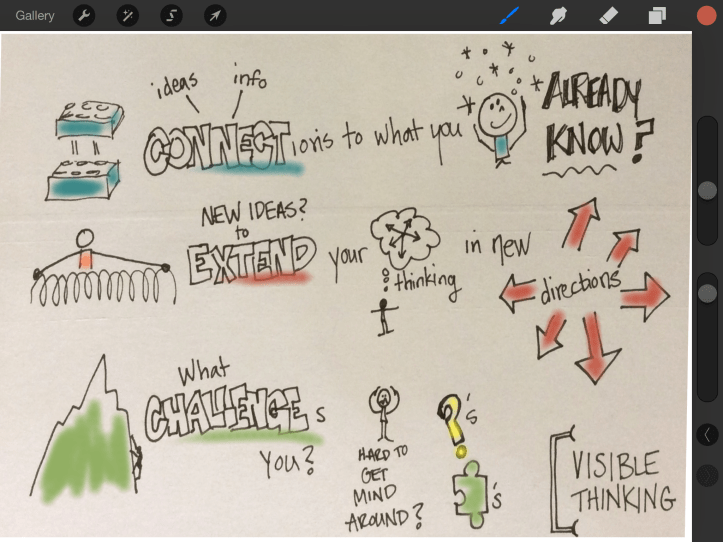 Gallery
ideas info
CONNECTions to what you ALREADY
KNOW?
NEW IDEAS?
to
EXTEND your thinking in new directions
What
CHALLENGES
YOU?
HARD TO
GET
MIND
AROUND?
?'s
's
VISIBLE
THINKING